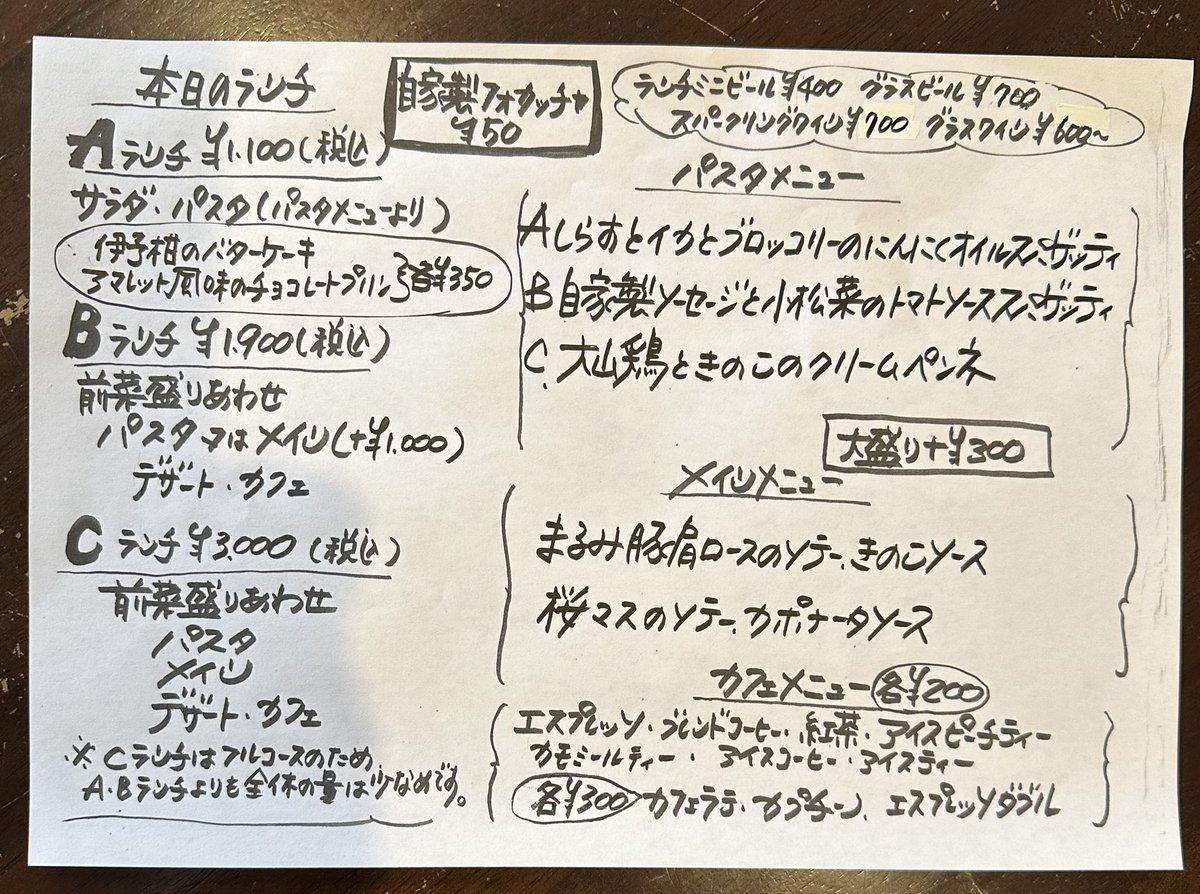 本日のランチ
Aランチ ¥1,100(税込)
サラダ・パスタ(パスタメニューより)
伊予柑のバターケーキ
アマレット風味のチョコレートプリン}各¥350
Bランチ ¥1,900(税込)
前菜盛りあわせ
パスタ又はメイン(+¥1,000)
デザート・カフェ
Cランチ ¥3,000(税込)
前菜盛りあわせ
パスタ
メイン
デザート・カフェ
※Cランチはフルコースのため、
A・Bランチよりも全体の量は少なめです。
自家製フォカッチャ
¥50
ランチミニビール¥400 グラスビール¥700
スパークリングワイン¥700 グラスワイン¥600〜
パスタメニュー
AしらすとイカとブロッコリーのにんにくオイルスパゲッティB自家製ソーセージと小松菜のトマトソーススパゲッティ
C.大山鶏ときのこのクリームペンネ
大盛り+¥300
メインメニュー
まるみ豚肩ロースのソテー、きのこソース
桜マスのソテー、カポナータソース
カフェメニュー 各¥200
エスプレッソ・ブレンドコーヒー・紅茶・アイスピーチティー
カモミールティー・アイスコーヒー・アイスティー
各¥300 カフェラテ・カプチーノ、エスプレッソダブル